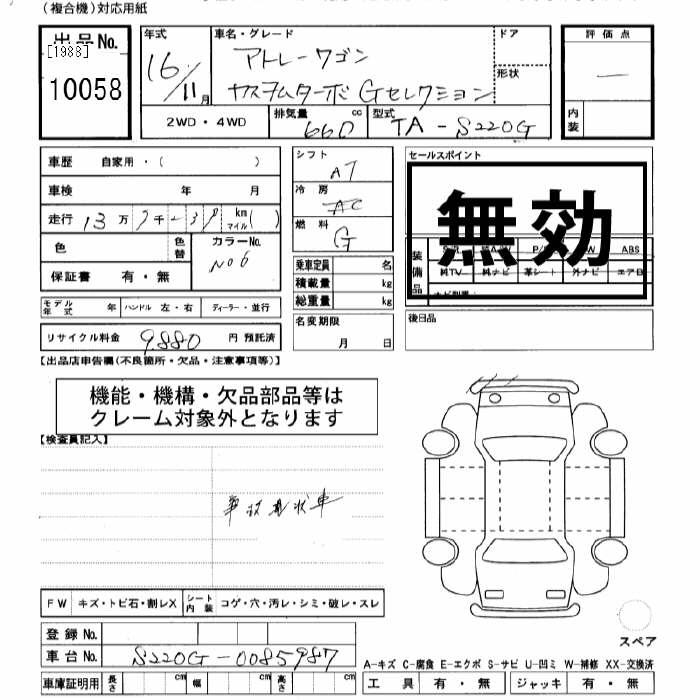 (複合機)対応用紙
出品No.
[1988]
10058
年式
16/11月
車名・グレード
アトレーワゴン
カスタムターボ Gセレクション
ドア
形状
評価点
—
内装
2WD・4WD
排気量 660 cc
型式 TA-S220G
車歴 自家用・( )
車検 年 月
走行 13万 千 km マイル( )
色
色替
カラーNo.
No6
保証書 有・無
モデル年式 年
ハンドル 左・右
ディーラー・並行
リサイクル料金 9,880 円 預託済
シフト
AT
冷房
AC
燃料
G
乗車定員 名
積載量 kg
総重量 kg
名変期限
月 日
セールスポイント
無効
装備品
ABS
純TV 純ナビ 革シート 外ナビ エアB
後日品
【出品店申告欄(不良箇所・欠品・注意事項等)】
機能・機構・欠品部品等は
クレーム対象外となります
【検査員記入】
事故現状車
FW キズ・トビ石・割レX
シート内装 コゲ・穴・汚レ・シミ・破レ・スレ
登録No.
車台No. S220G-0085987
車庫証明用 長さ cm 幅 cm 高さ cm
スペア
A-キズ C-腐食 E-エクボ S-サビ U-凹ミ W-補修 XX-交換済
工具 有・無 ジャッキ 有・無